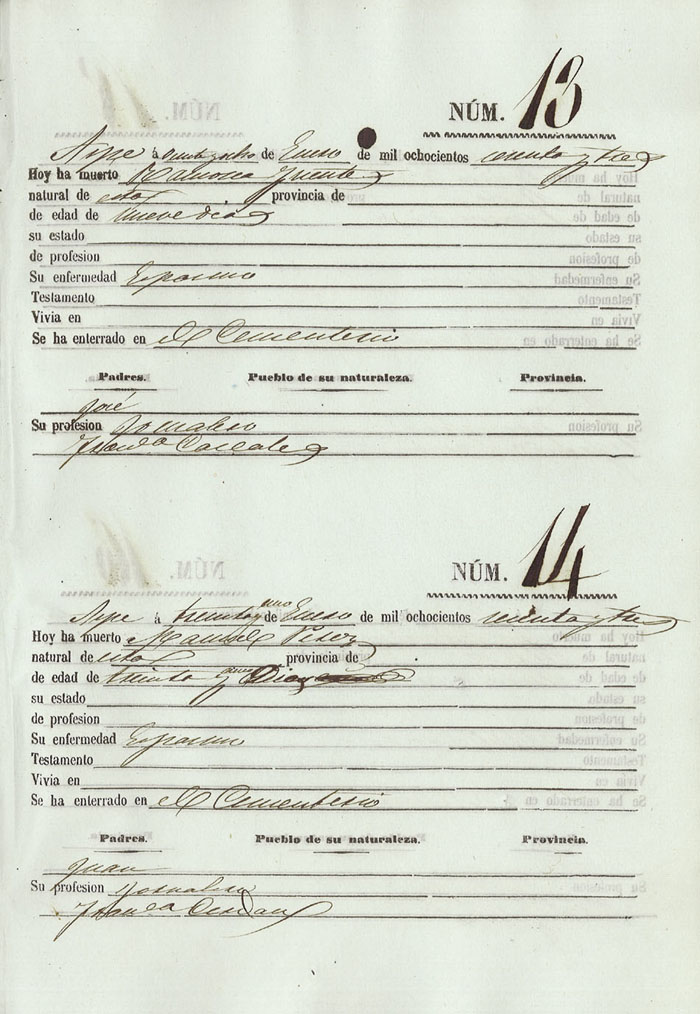 NÚM. 13
Aspe á veinte y ocho de Enero de mil ochocientos sesenta y tres
Hoy ha muerto Ramona
natural de esta provincia de
de edad de nueve dias
su estado
de profesion
Su enfermedad Espasmo
Testamento
Vivia en
Se ha enterrado en el Cementerio
Padres. Pueblo de su naturaleza. Provincia.
José
Su profesion Jornalero

NÚM. 14
Aspe á treinta y uno de Enero de mil ochocientos sesenta y tres
Hoy ha muerto Manuel Perez
natural de esta provincia de
de edad de treinta y
su estado
de profesion
Su enfermedad Espasmo
Testamento
Vivia en
Se ha enterrado en el Cementerio
Padres. Pueblo de su naturaleza. Provincia.
Juan
Su profesion Jornalero